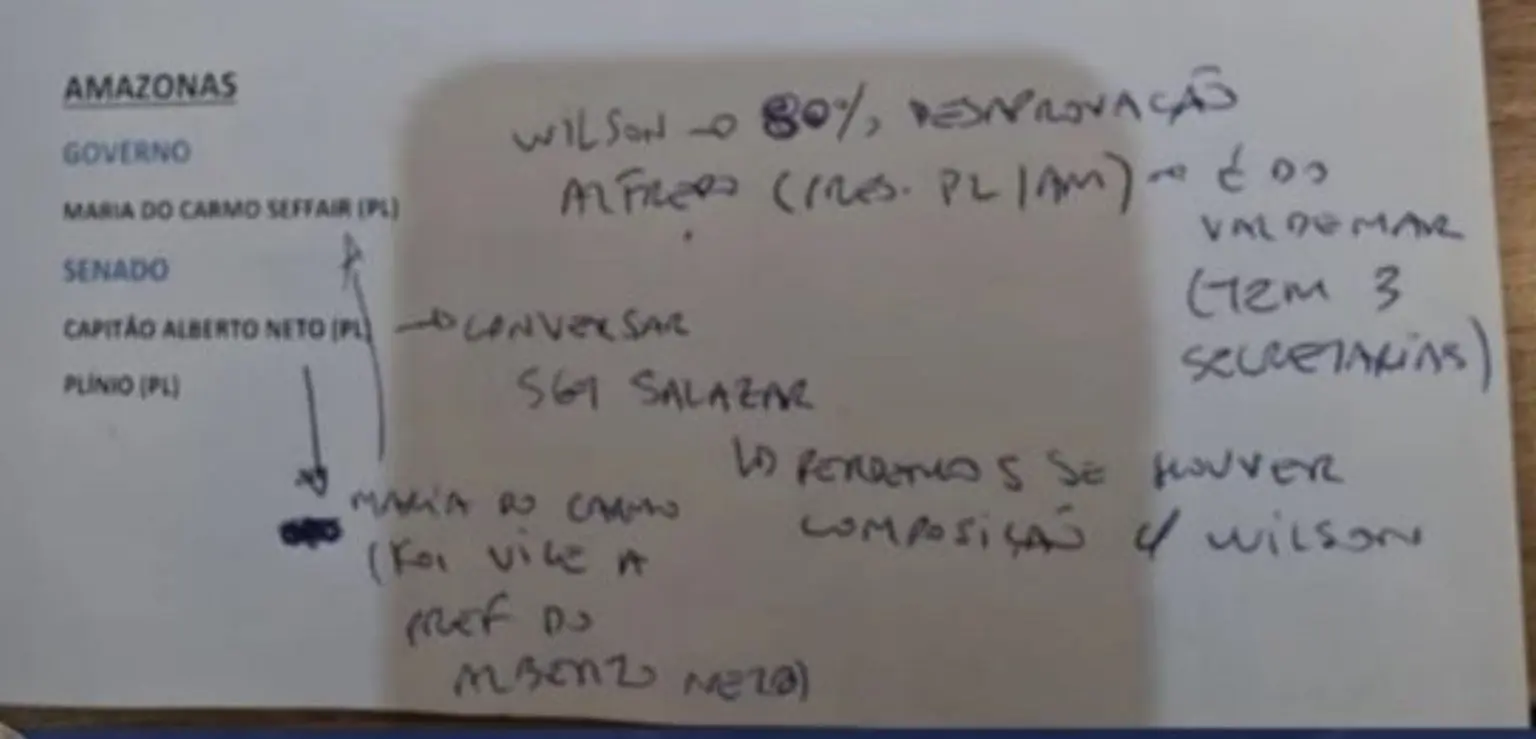 AMAZONAS
GOVERNO
MARIA DO CARMO SEFFAIR (PL)
SENADO
CAPITÃO ALBERTO NETO (PL)
PLÍNIO (PL)
WILSON → 80% DESAPROVAÇÃO
ALFREDO (PRES. PL/AM) → É DO
VALDEMAR
(TEM 3
SECRETARIAS)
→ CONVERSAR
SGT SALAZAR
↳ PERDEMOS SE HOUVER
COMPOSIÇÃO C/ WILSON
MARIA DO CARMO
(FOI VICE A
PREF DO
ALBERTO NETO)